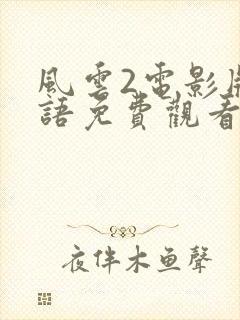 風雲2電影
語免費觀看
夜伴木鱼聲